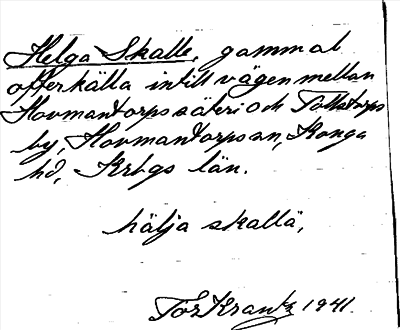 Helga Skalle, gammal
offerkälla intill vägen mellan
Hovmantorps säteri och Tollstorps
by, Hovmantorps sn, Konga
hd, Krbgs län.
hälja skallä,
Tor Krantz 1941.